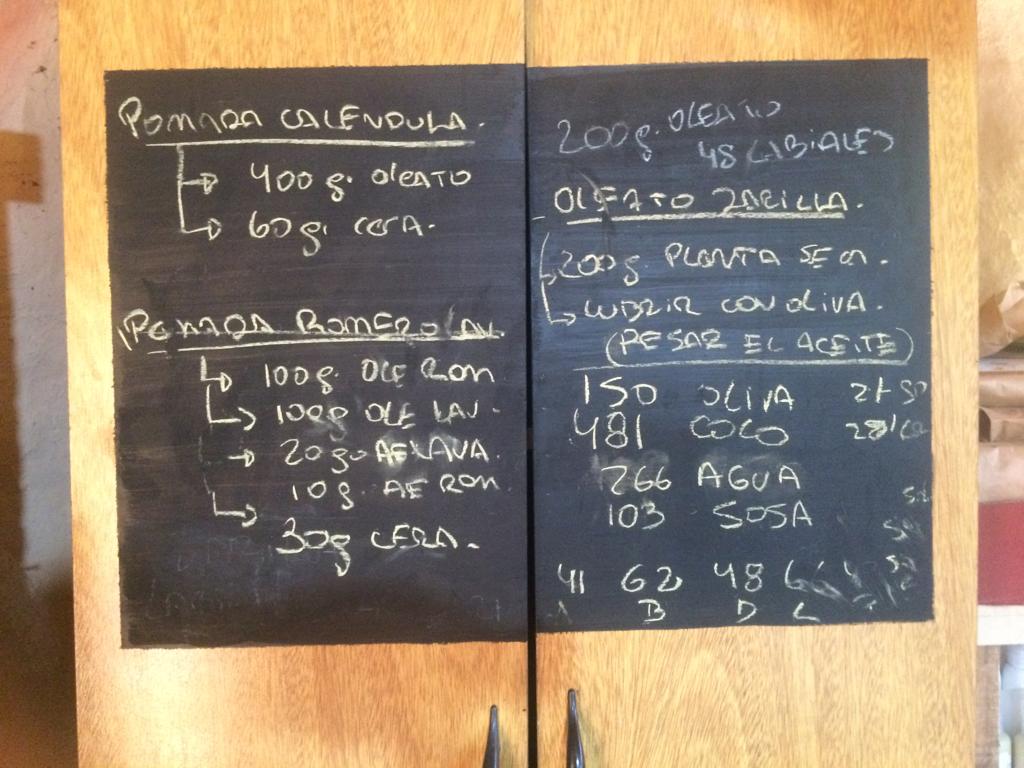 POMADA CALENDULA.
400 g. OLEATO
60 g. CERA.
POMADA ROMERO LAV.
100 g. OLE ROM
100g OLE LAV.
20 g. AE LAVA.
10 g. AE ROM
30g CERA.
200g. OLEATO
48 LABIALES
OLEATO ZARILLA.
200g. PLANTA SECA.
CUBRIR CON OLIVA.
(PESAR EL ACEITE)
150 OLIVA
481 COCO
266 AGUA
103 SOSA
41 62 48
B D L